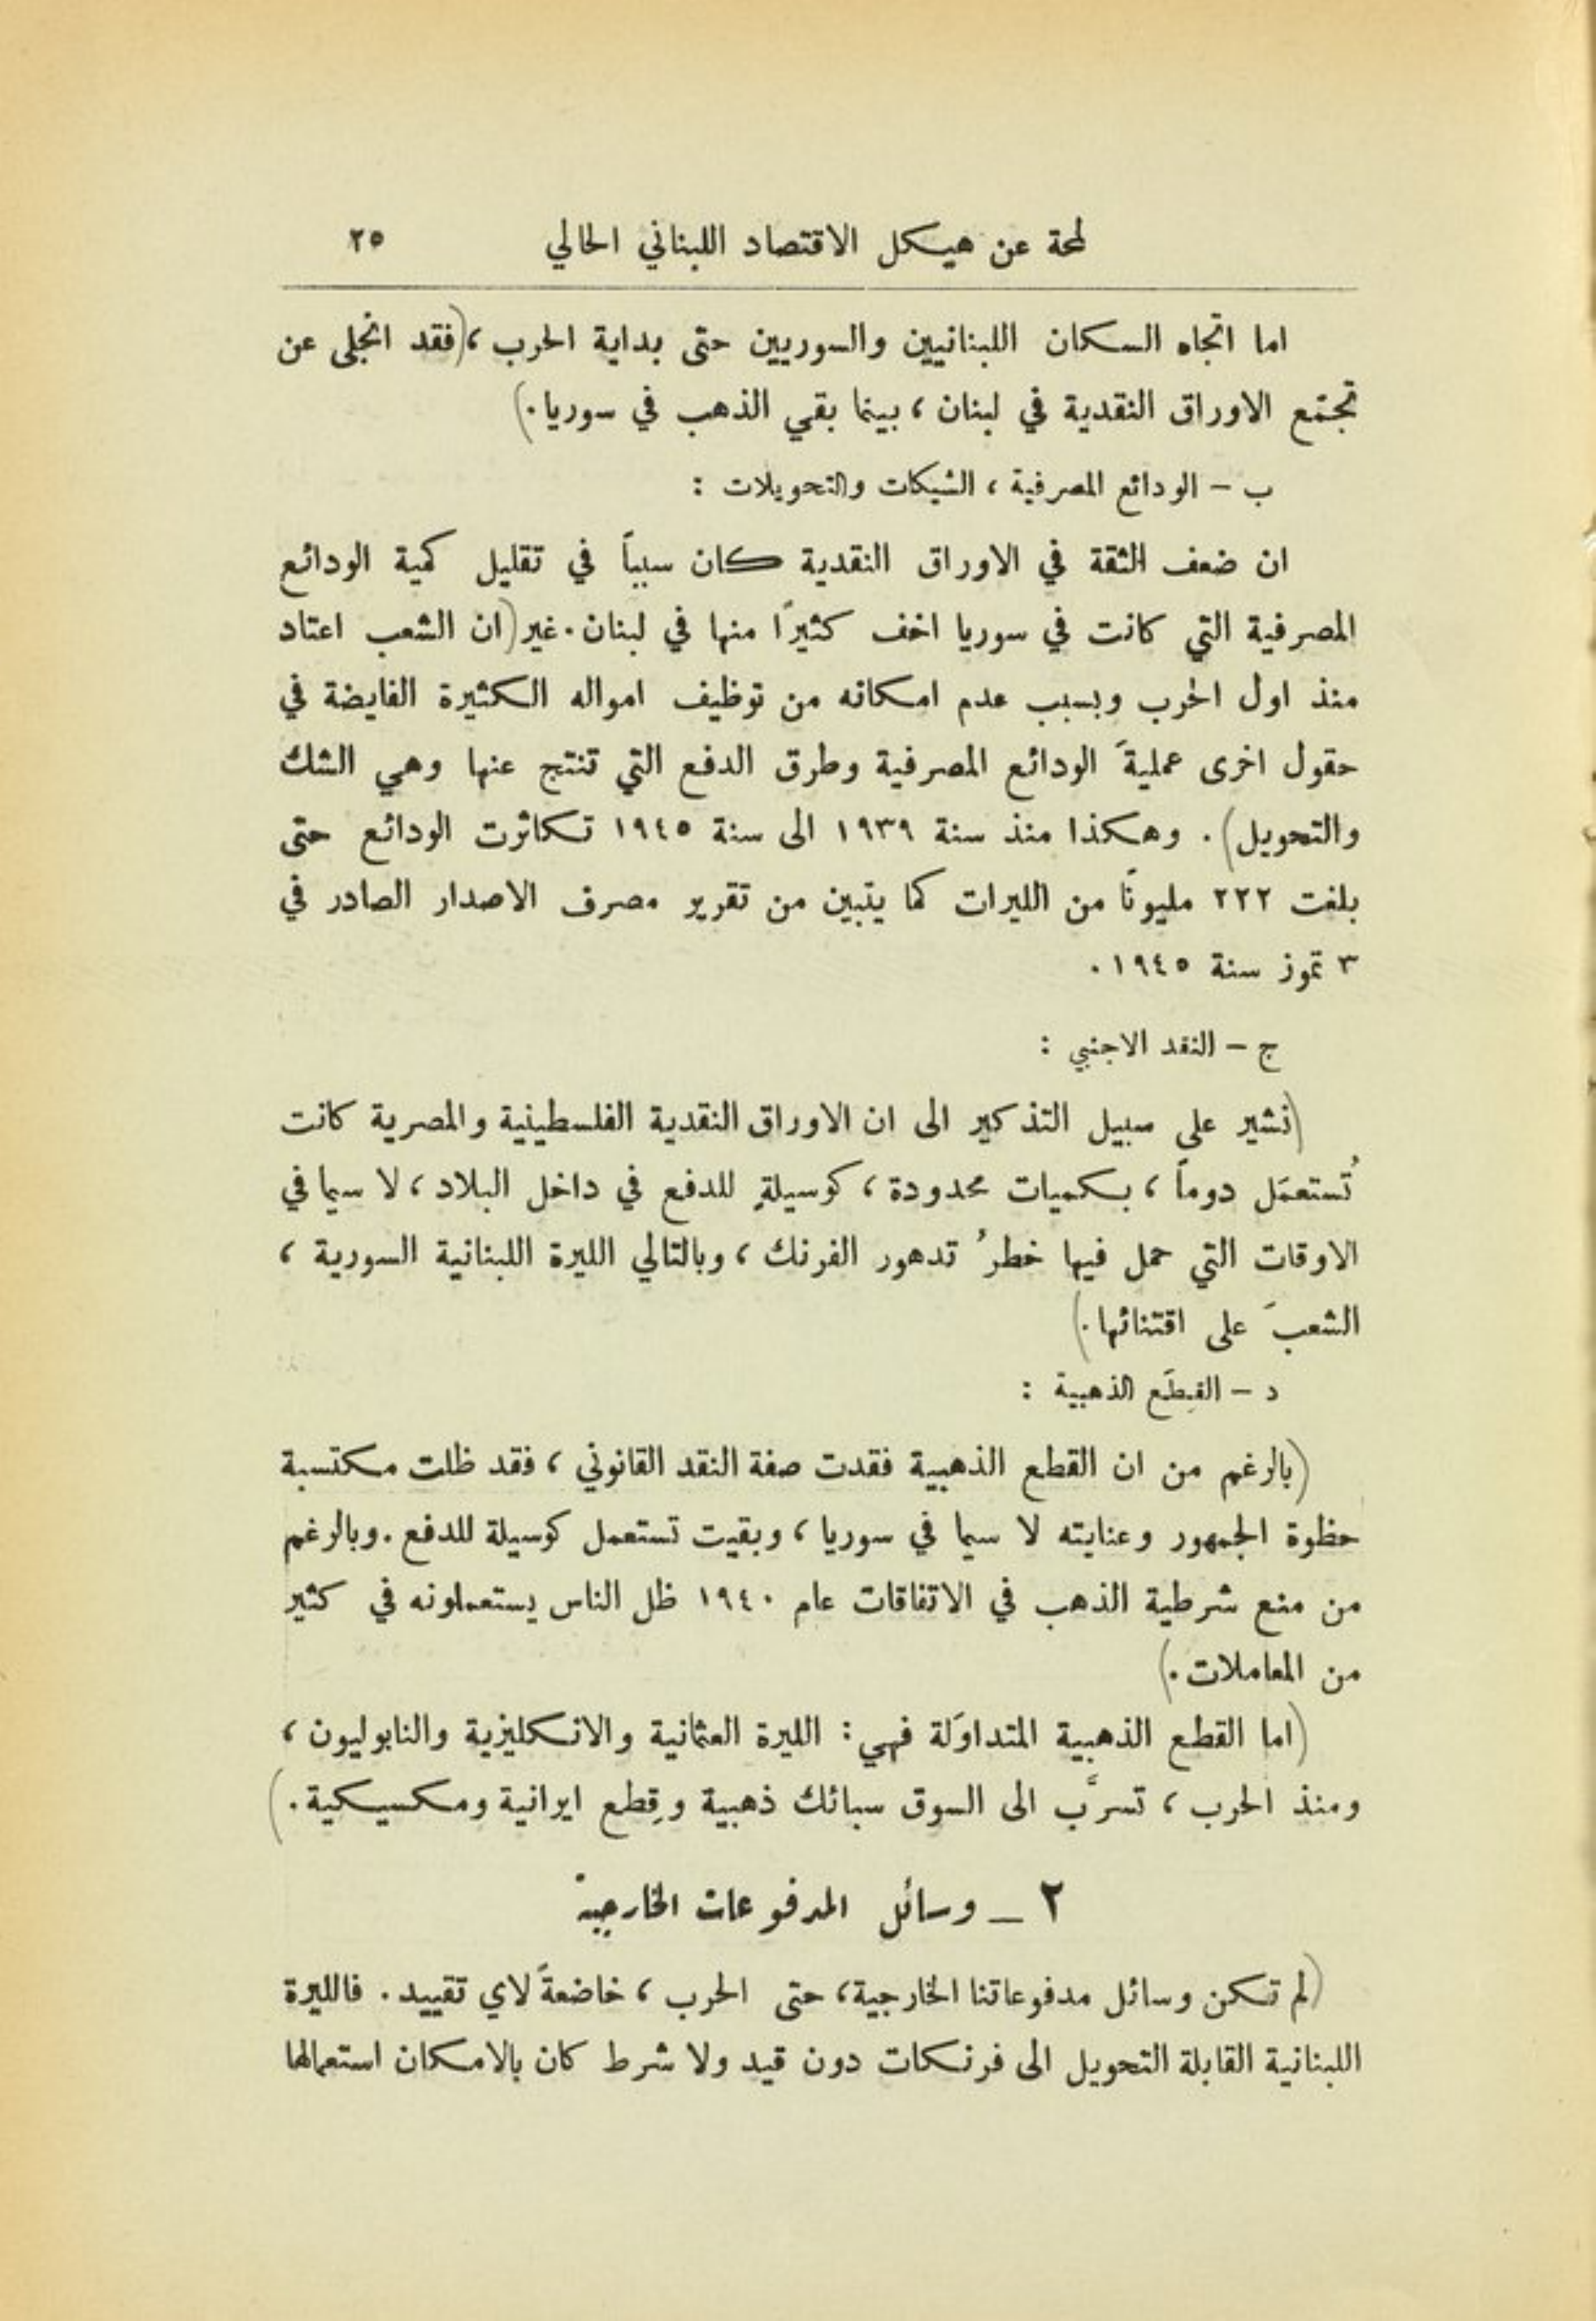 لمحة عن هيكل الاقتصاد اللبناني الحالي ٢٥
اما اتجاه السكان اللبنانيين والسوريين حتى بداية الحرب ، (فقد انجلى عن
تجمّع الاوراق النقدية في لبنان ، بينما بقي الذهب في سوريا .)
ب – الودائع المصرفية ، الشيكات والتحويلات :
ان ضعف الثقة في الاوراق النقدية كان سبباً في تقليل كمية الودائع
المصرفية التي كانت في سوريا اخف كثيراً منها في لبنان . غير (ان الشعب اعتاد
منذ اول الحرب وبسبب عدم امكانه من توظيف امواله الكثيرة الفايضة في
حقول اخرى عمليةَ الودائع المصرفية وطرق الدفع التي تنتج عنها وهي الشك
والتحويل) . وهكذا منذ سنة ١٩٣٩ الى سنة ١٩٤٥ تكاثرت الودائع حتى
بلغت ٢٢٢ مليونًا من الليرات كما يتبين من تقرير مصرف الاصدار الصادر في
٣ تموز سنة ١٩٤٥ .
ج – النقد الاجنبي :
(نشير على سبيل التذكير الى ان الاوراق النقدية الفلسطينية والمصرية كانت
تُستعمَل دوماً ، بكميات محدودة ، كوسيلةٍ للدفع في داخل البلاد ، لا سيما في
الاوقات التي حمل فيها خطرُ تدهور الفرنك ، وبالتالي الليرة اللبنانية السورية ،
الشعبَ على اقتنائها .)
د – القِطَع الذهبية :
(بالرغم من ان القطع الذهبية فقدت صفة النقد القانوني ، فقد ظلت مكتسبة
حظوة الجمهور وعنايته لا سيما في سوريا ، وبقيت تستعمل كوسيلة للدفع . وبالرغم
من منع شرطية الذهب في الاتفاقات عام ١٩٤٠ ظل الناس يستعملونه في كثير
من المعاملات .)
(اما القطع الذهبية المتداوَلة فهي : الليرة العثمانية والانكليزية والنابوليون ،
ومنذ الحرب ، تسرَّب الى السوق سبائك ذهبية وقِطع ايرانية ومكسيكية .)
٢ – وسائل المدفوعات الخارجية
(لم تكن وسائل مدفوعاتنا الخارجية ، حتى الحرب ، خاضعةً لاي تقييد . فالليرة
اللبنانية القابلة التحويل الى فرنكات دون قيد ولا شرط كان بالامكان استعمالها